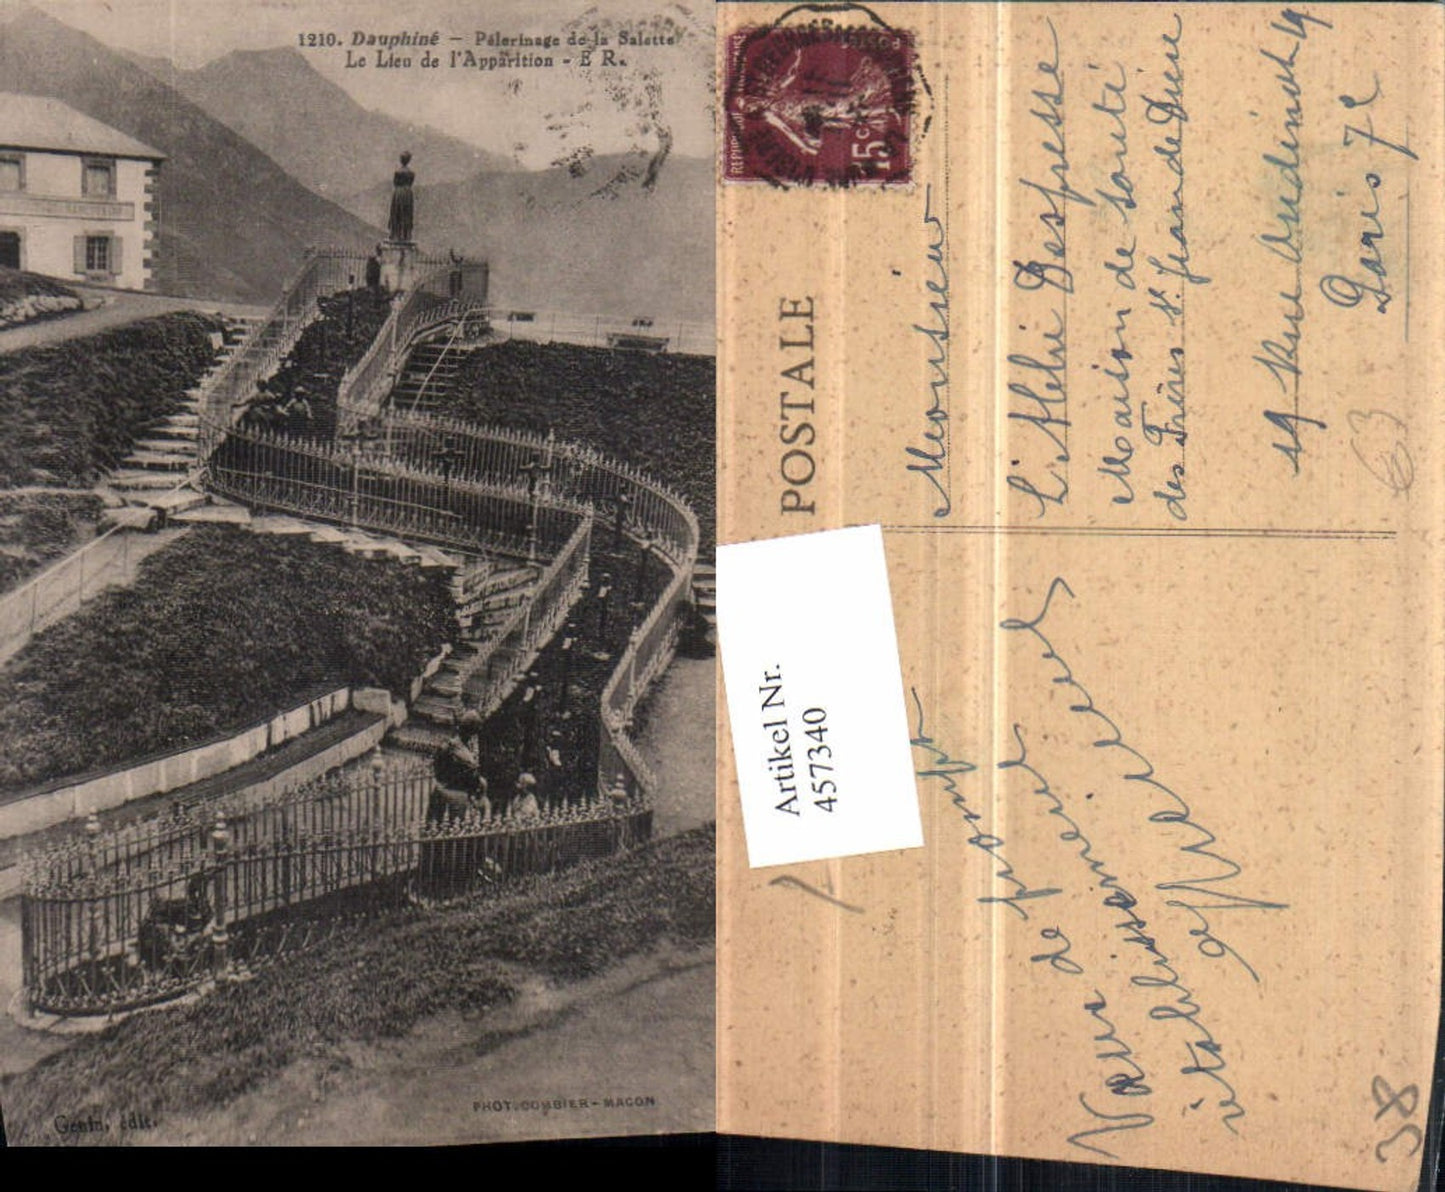 1210. Dauphiné — Pélerinage de la Salette
Le Lieu de l'Apparition - E R.
PHOT. COMBIER - MACON
Genin, édit.
POSTALE
15c
Artikel Nr.
457340
Monsieur
L'Abbé Despresse
Maison de Santé
des Frères St. Jean de Dieu
19 Rue Oudinot 19
Paris 7e
63
Vœux de
prompt
rétablissement
38